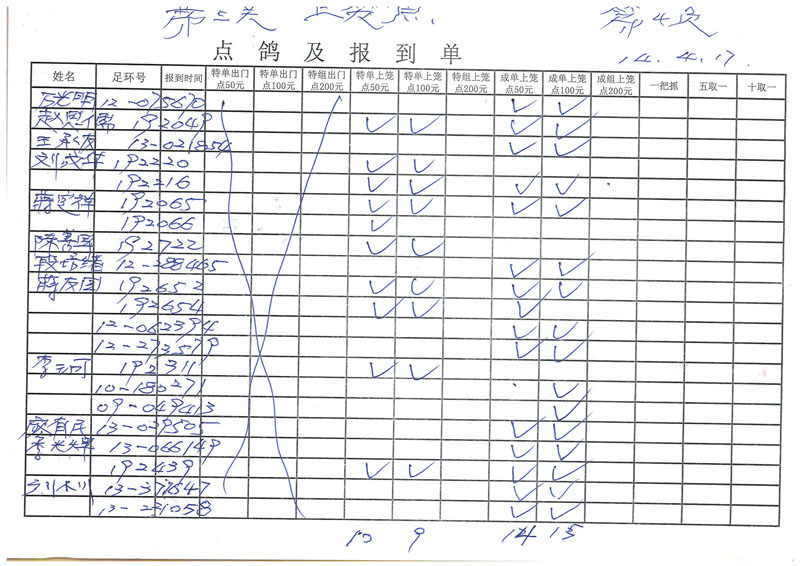 第三关 上笼点. 第4页
点鸽及报到单 14.4.17.
姓名 足环号 报到时间 特单出门点50元 特单出门点100元 特组出门点200元 特单上笼点50元 特单上笼点100元 特组上笼点200元 成单上笼点50元 成单上笼点100元 成组上笼点200元 一把抓 五取一 十取一
12-075670 ✓ ✓
赵恩儒 192049 ✓ ✓ ✓ ✓
13-021854 ✓ ✓
刘成华 192220 ✓ ✓
192216 ✓ ✓ ✓ ✓
192065 ✓ ✓ ✓ ✓
192066 ✓
陈善国 192722 ✓ ✓
12-288465 ✓ ✓
蒋友国 192652 ✓ ✓ ✓ ✓
192654 ✓ ✓ ✓
12-062394 ✓ ✓
12-272579 ✓ ✓
192311 ✓ ✓
10-180271 ✓
09-049413 ✓
13-039505 ✓ ✓
13-066149 ✓ ✓
192439 ✓ ✓ ✓ ✓
13-371547 ✓ ✓
13-231058 ✓ ✓
10 9 14 15